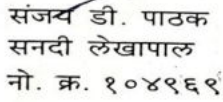 संजय डी. पाठक
सनदी लेखापाल
नो. क्र. १०४९६९